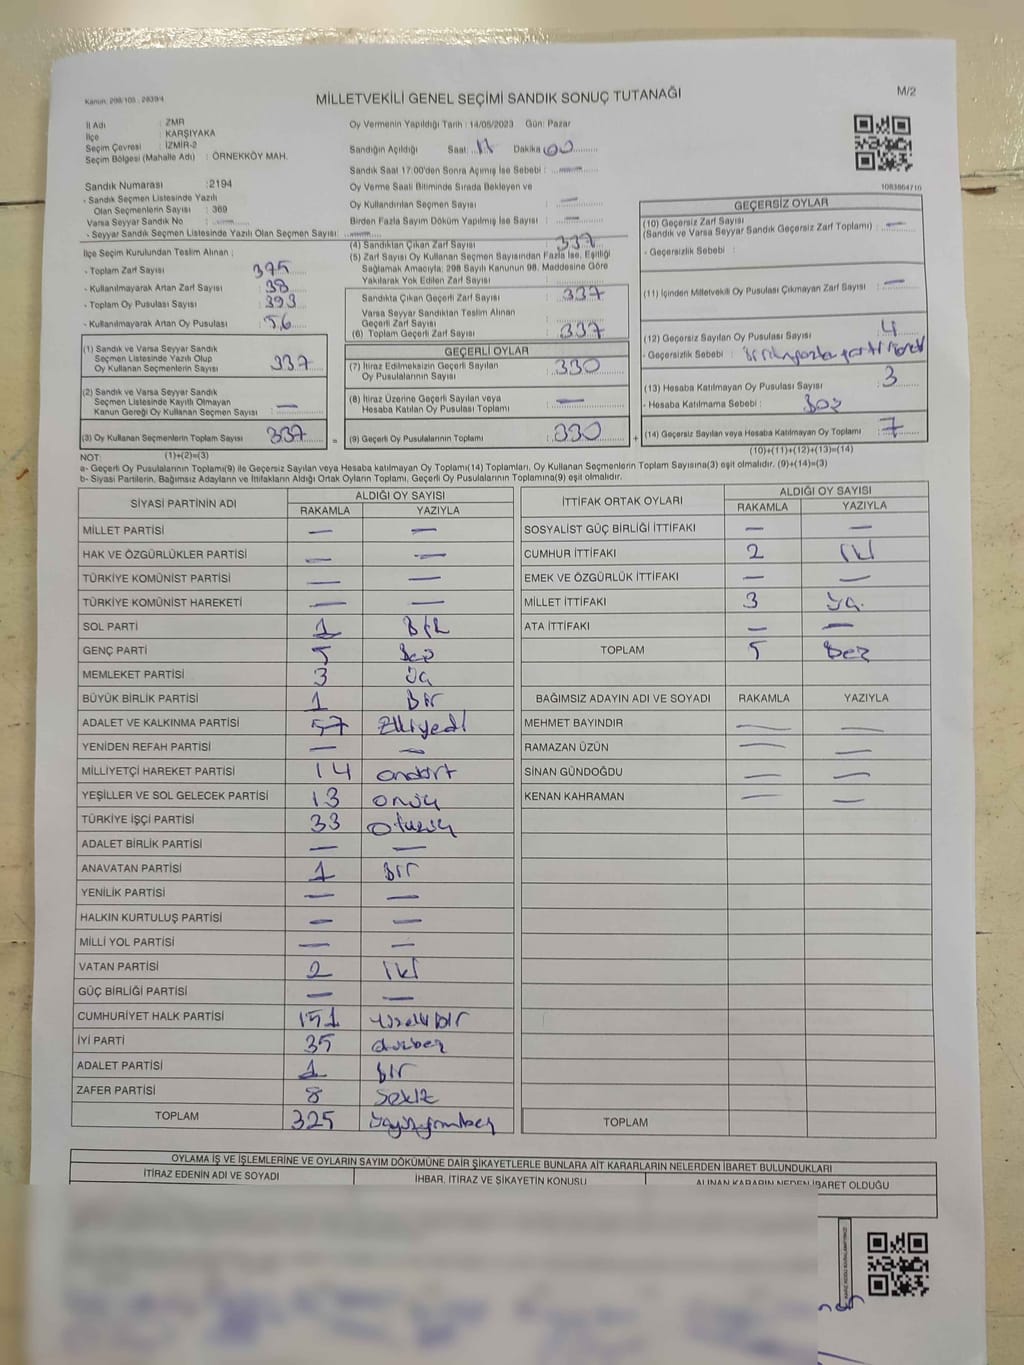 Kanun: 298/105 , 2839/4
MİLLETVEKİLİ GENEL SEÇİMİ SANDIK SONUÇ TUTANAĞI
M/2
İl Adı : ZMR
İlçe : KARŞIYAKA
Seçim Çevresi : İZMİR-2
Seçim Bölgesi (Mahalle Adı) : ÖRNEKKÖY MAH.
Oy Vermenin Yapıldığı Tarih : 14/05/2023 Gün: Pazar
Sandığın Açıldığı Saat: Dakika 00
Sandık Saat 17:00'den Sonra Açımış İse Sebebi : —
Oy Verme Saati Bitiminde Sırada Bekleyen ve
Oy Kullandırılan Seçmen Sayısı : —
Birden Fazla Sayım Döküm Yapılmış İse Sayısı : —
Sandık Numarası : 2194
- Sandık Seçmen Listesinde Yazılı
Olan Seçmenlerin Sayısı : 369
Varsa Seyyar Sandık No : —
- Seyyar Sandık Seçmen Listesinde Yazılı Olan Seçmen Sayısı : —
İlçe Seçim Kurulundan Teslim Alınan :
- Toplam Zarf Sayısı : 395
- Kullanılmayarak Artan Zarf Sayısı : 38
- Toplam Oy Pusulası Sayısı : 393
- Kullanılmayarak Artan Oy Pusulası : 56
(1) Sandık ve Varsa Seyyar Sandık
Seçmen Listesinde Yazılı Olup
Oy Kullanan Seçmenlerin Sayısı : 337
(2) Sandık ve Varsa Seyyar Sandık
Seçmen Listesinde Kayıtlı Olmayan
Kanun Gereği Oy Kullanan Seçmen Sayısı : —
(3) Oy Kullanan Seçmenlerin Toplam Sayısı : 337 =
(1)+(2)=(3)
(4) Sandıktan Çıkan Zarf Sayısı : 337
(5) Zarf Sayısı Oy Kullanan Seçmen Sayısından Fazla İse, Eşitliği
Sağlamak Amacıyla; 298 Sayılı Kanunun 98. Maddesine Göre
Yakılarak Yok Edilen Zarf Sayısı :
Sandıkta Çıkan Geçerli Zarf Sayısı : 337
Varsa Seyyar Sandıktan Teslim Alınan
Geçerli Zarf Sayısı :
(6) Toplam Geçerli Zarf Sayısı : 337
GEÇERLİ OYLAR
(7) İtiraz Edilmeksizin Geçerli Sayılan
Oy Pusulalarının Sayısı : 330
(8) İtiraz Üzerine Geçerli Sayılan veya
Hesaba Katılan Oy Pusulası Toplamı : —
(9) Geçerli Oy Pusulalarının Toplamı : 330 +
1083864710
GEÇERSİZ OYLAR
(10) Geçersiz Zarf Sayısı
(Sandık ve Varsa Seyyar Sandık Geçersiz Zarf Toplamı) : —
- Geçersizlik Sebebi :
(11) İçinden Milletvekili Oy Pusulası Çıkmayan Zarf Sayısı : —
(12) Geçersiz Sayılan Oy Pusulası Sayısı : 4
- Geçersizlik Sebebi :
(13) Hesaba Katılmayan Oy Pusulası Sayısı : 3
- Hesaba Katılmama Sebebi : Boş
(14) Geçersiz Sayılan veya Hesaba Katılmayan Oy Toplamı : 7
(10)+(11)+(12)+(13)=(14)
NOT:
a- Geçerli Oy Pusulalarının Toplamı(9) ile Geçersiz Sayılan veya Hesaba katılmayan Oy Toplamı(14) Toplamları, Oy Kullanan Seçmenlerin Toplam Sayısına(3) eşit olmalıdır. (9)+(14)=(3)
b- Siyasi Partilerin, Bağımsız Adayların ve İttifakların Aldığı Ortak Oyların Toplamı, Geçerli Oy Pusulalarının Toplamına(9) eşit olmalıdır.
SİYASİ PARTİNİN ADI ALDIĞI OY SAYISI
RAKAMLA YAZIYLA
MİLLET PARTİSİ — —
HAK VE ÖZGÜRLÜKLER PARTİSİ — —
TÜRKİYE KOMÜNİST PARTİSİ — —
TÜRKİYE KOMÜNİST HAREKETİ — —
SOL PARTİ 1 Bir
GENÇ PARTİ 5 Beş
MEMLEKET PARTİSİ 3 Üç
BÜYÜK BİRLİK PARTİSİ 1 Bir
ADALET VE KALKINMA PARTİSİ 57 Elliyedi
YENİDEN REFAH PARTİSİ — —
MİLLİYETÇİ HAREKET PARTİSİ 14 ondört
YEŞİLLER VE SOL GELECEK PARTİSİ 13 onüç
TÜRKİYE İŞÇİ PARTİSİ 33 Otuzüç
ADALET BİRLİK PARTİSİ — —
ANAVATAN PARTİSİ 1 Bir
YENİLİK PARTİSİ — —
HALKIN KURTULUŞ PARTİSİ — —
MİLLİ YOL PARTİSİ — —
VATAN PARTİSİ 2 iki
GÜÇ BİRLİĞİ PARTİSİ — —
CUMHURİYET HALK PARTİSİ 151 yüzellibir
İYİ PARTİ 35 otuzbeş
ADALET PARTİSİ 1 bir
ZAFER PARTİSİ 8 sekiz
TOPLAM 325 üçyüzyirmibeş
İTTİFAK ORTAK OYLARI ALDIĞI OY SAYISI
RAKAMLA YAZIYLA
SOSYALİST GÜÇ BİRLİĞİ İTTİFAKI — —
CUMHUR İTTİFAKI 2 iki
EMEK VE ÖZGÜRLÜK İTTİFAKI — —
MİLLET İTTİFAKI 3 üç
ATA İTTİFAKI — —
TOPLAM 5 Beş
BAĞIMSIZ ADAYIN ADI VE SOYADI RAKAMLA YAZIYLA
MEHMET BAYINDIR — —
RAMAZAN ÜZÜN — —
SİNAN GÜNDOĞDU — —
KENAN KAHRAMAN — —
TOPLAM
OYLAMA İŞ VE İŞLEMLERİNE VE OYLARIN SAYIM DÖKÜMÜNE DAİR ŞİKAYETLERLE BUNLARA AİT KARARLARIN NELERDEN İBARET BULUNDUKLARI
İTİRAZ EDENİN ADI VE SOYADI İHBAR, İTİRAZ VE ŞİKAYETİN KONUSU ALINAN KARARIN NEDEN İBARET OLDUĞU